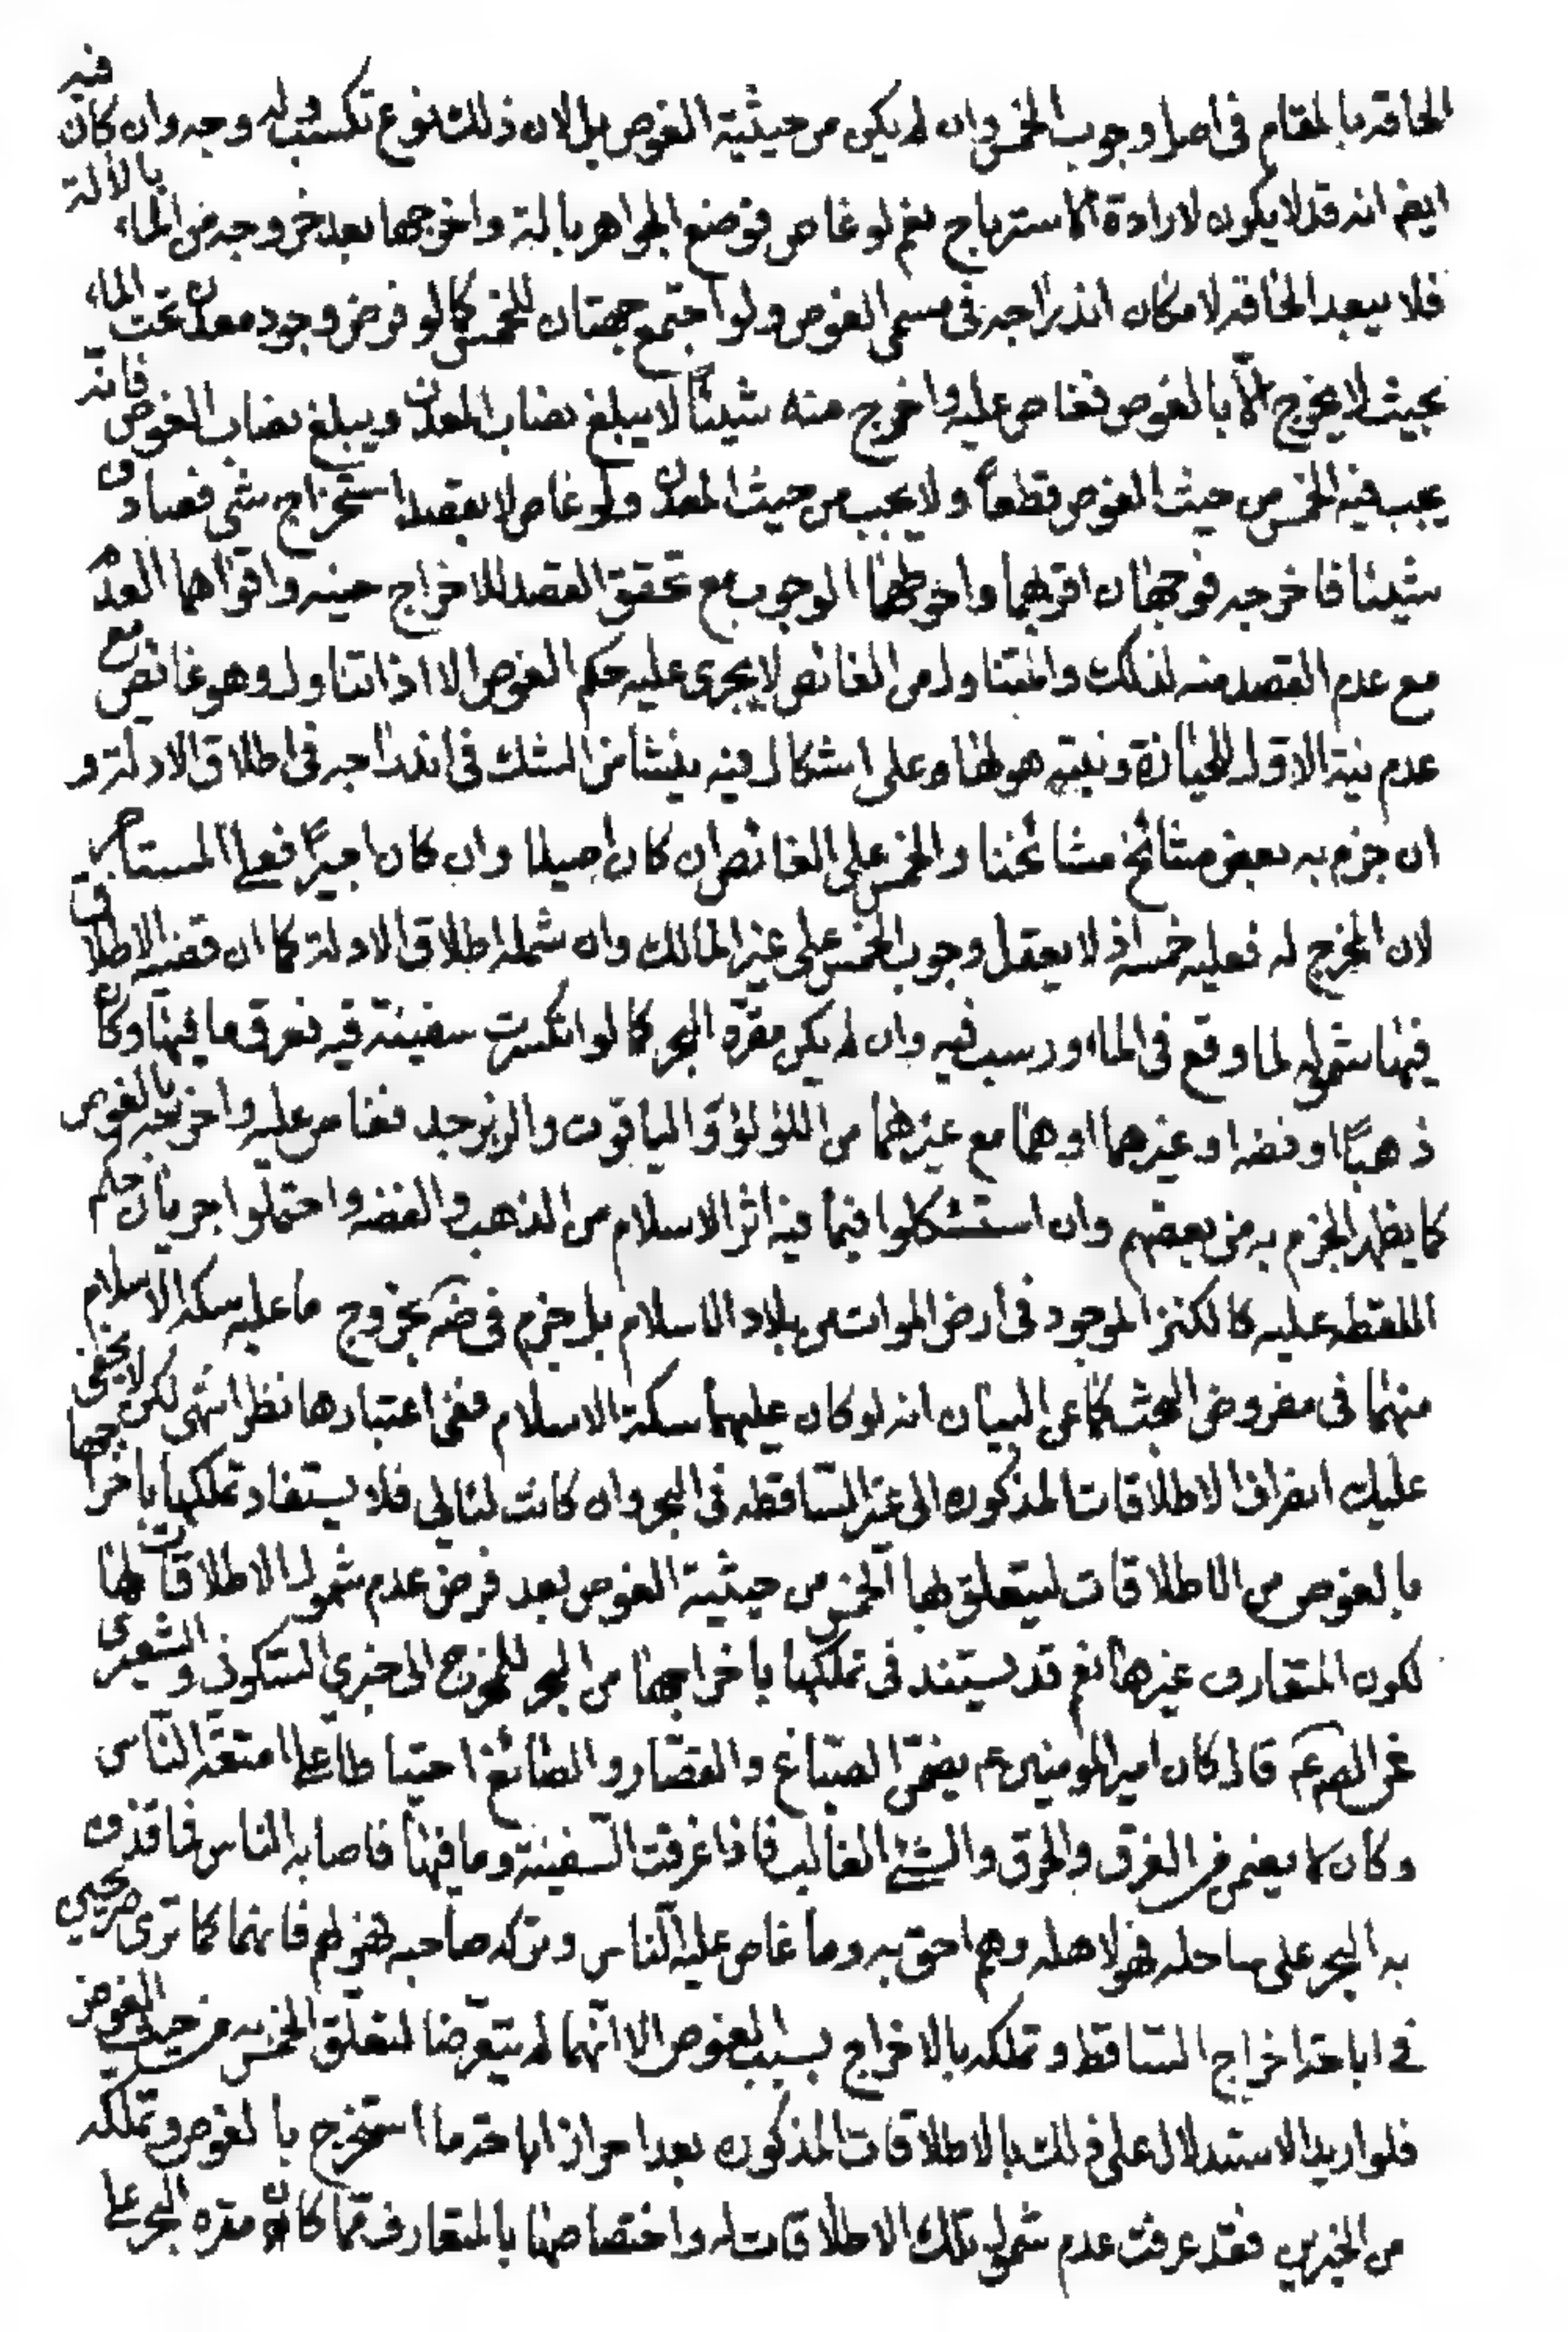 الحاقه بالمقام فى اصل وجوب الخمس وان لم يكن من حيثية الغوص بل لان ذلك نوع تكسب له وجه وان كان فيه
ايضا انه قد لا يكون لارادة الاسترباح نعم لو غاص فوضع الجواهر بالة واخرجها بعد خروجه من الماء بالالة
فلا يبعد الحاقه لامكان اندراجه فى مسمى الغوص ولو اجتمع جهتان للخمس كما لو فرض وجود معدن تحت الماء
بحيث لا يخرج الا بالغوص فغاص عليه واخرج منه شيئا لا يبلغ نصاب المعدن ويبلغ نصاب الغوص فانه
يجب فيه الخمس من حيث الغوص قطعا ولا يجب من حيث المعدن ولو غاص لا بقصد استخراج شئ فصادف
شيئا فاخرجه فوجهان اقربهما واحوطهما الوجوب مع تحقق القصد للاخراج حينه واقواهما العدم
مع عدم القصد منه لذلك والمتناول من الغائص لا يجرى عليه حكم الغوص الا اذا تناول وهو غائص مع
عدم نية الاول للحيازة ونيته هو لها وعلى اشكال فيه ينشا من الشك فى اندراجه فى اطلاق الادلة و
ان جزم به بعض مشائخ مشائخنا والخمس على الغائص ان كان اصيلا وان كان اجيرا فعلى المستاجر
لان المخرج له فعليه خمسه اذ لا يعقل وجوب الخمس على غير المالك وان شمله اطلاق الادلة كما ان قضيه الاطلاق
فيها شموله لما وقع فى الماء ورسب فيه وان لم يكن مقره البحر كما لو انكسرت سفينة فيه فغرق ما فيها وكان
ذهبا او فضه او غيرهما او هما مع غيرهما من اللؤلؤ والياقوت والزبرجد فغاص عليه واخرجه بالغوص
كما يظهر الجزم به من بعضهم وان استشكلوا فيما فيه اثر الاسلام من الذهب والفضه واحتملوا جريان حكم
اللقطه عليه كالكنز الموجود فى ارض الموات من بلاد الاسلام بل جزم فى ضه بخروج ما عليه سكه الاسلام
منهما فى مفروض البحث كما عن البيان انه لو كان عليهما سكة الاسلام ففى اعتبارها نظر انتهى لكن لا يخفى
عليك انصراف الاطلاقات المذكوره الى غير الساقطه فى البحر وان كانت لئالى فلا يستفاد تملكها باخراجها
بالغوص من الاطلاقات ليتعلق بها الخمس من حيثية الغوص بعد فرض عدم شمول الاطلاقات لها
لكون المتعارف غيرها نعم قد يستند فى تملكها باخراجها من البحر للمخرج الى خبرى السكونى والشعيرى
عن الصم ع قال كان امير المومنين ع يضمن الصباغ والقصار والصائغ احتياطا على امتعة الناس
وكان لا يضمن من الغرق والحرق والشئ الغالب فاذا غرقت السفينة وما فيها فاصابه الناس فما قذف
به البحر على ساحله فهو لاهله وهم احق به وما غاص عليه الناس وتركه صاحبه فهو لهم فانهما كما ترى صريحين
فى اباحة اخراج الساقط وتملكه بالاخراج بسبب الغوص الا انهما لم يتعرضا لتعلق الخمس به من حيث الغوص
فلو اريد الاستدلال على ذلك بالاطلاقات المذكوره بعد احراز اباحة ما استخرج بالغوص وتملكه
من الخبرين فقد عرفت عدم شمول تلك الاطلاقات له واختصاصها بالمتعارف مما كان مقره البحر على